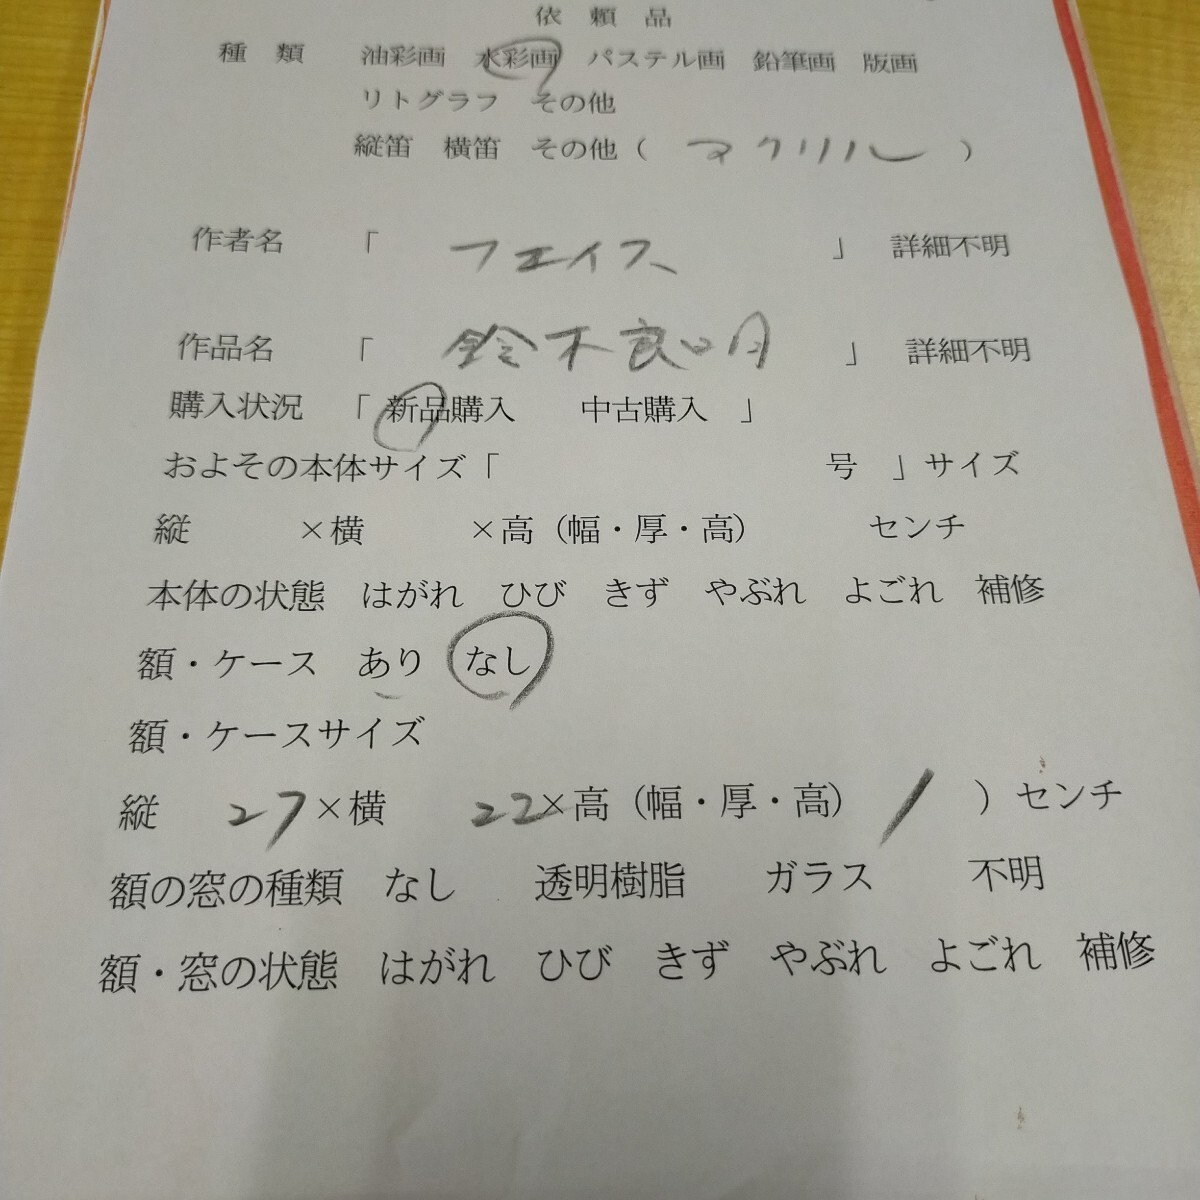 依頼品
種類 油彩画 水彩画 パステル画 鉛筆画 版画
リトグラフ その他
縦笛 横笛 その他（ アクリル ）
作者名 「 フェイス 」 詳細不明
作品名 「 鈴木良明 」 詳細不明
購入状況 「 新品購入 中古購入 」
およその本体サイズ「 号 」サイズ
縦 ×横 ×高（幅・厚・高） センチ
本体の状態 はがれ ひび きず やぶれ よごれ 補修
額・ケース あり なし
額・ケースサイズ
縦 27 ×横 22 ×高（幅・厚・高） 1 ）センチ
額の窓の種類 なし 透明樹脂 ガラス 不明
額・窓の状態 はがれ ひび きず やぶれ よごれ 補修